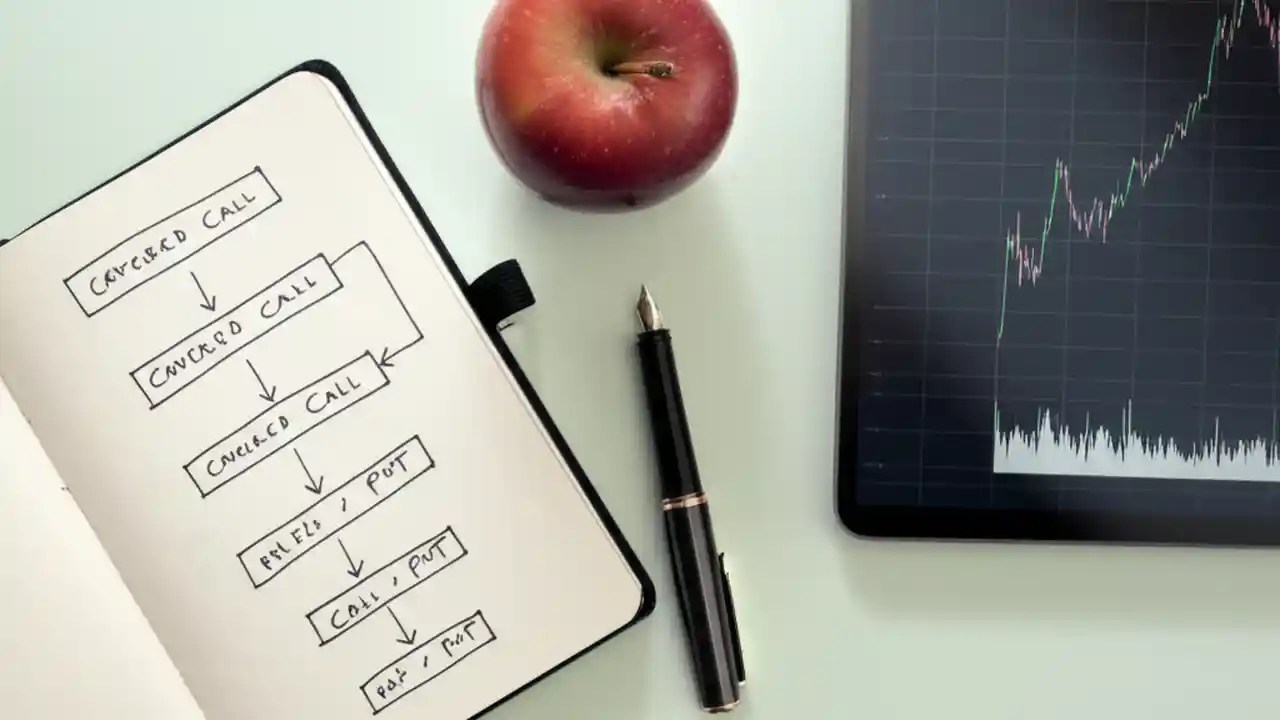 COVERED CALL
COVERED CALL
COVERED CALL
, PUT
CALL , PUT
, PUT